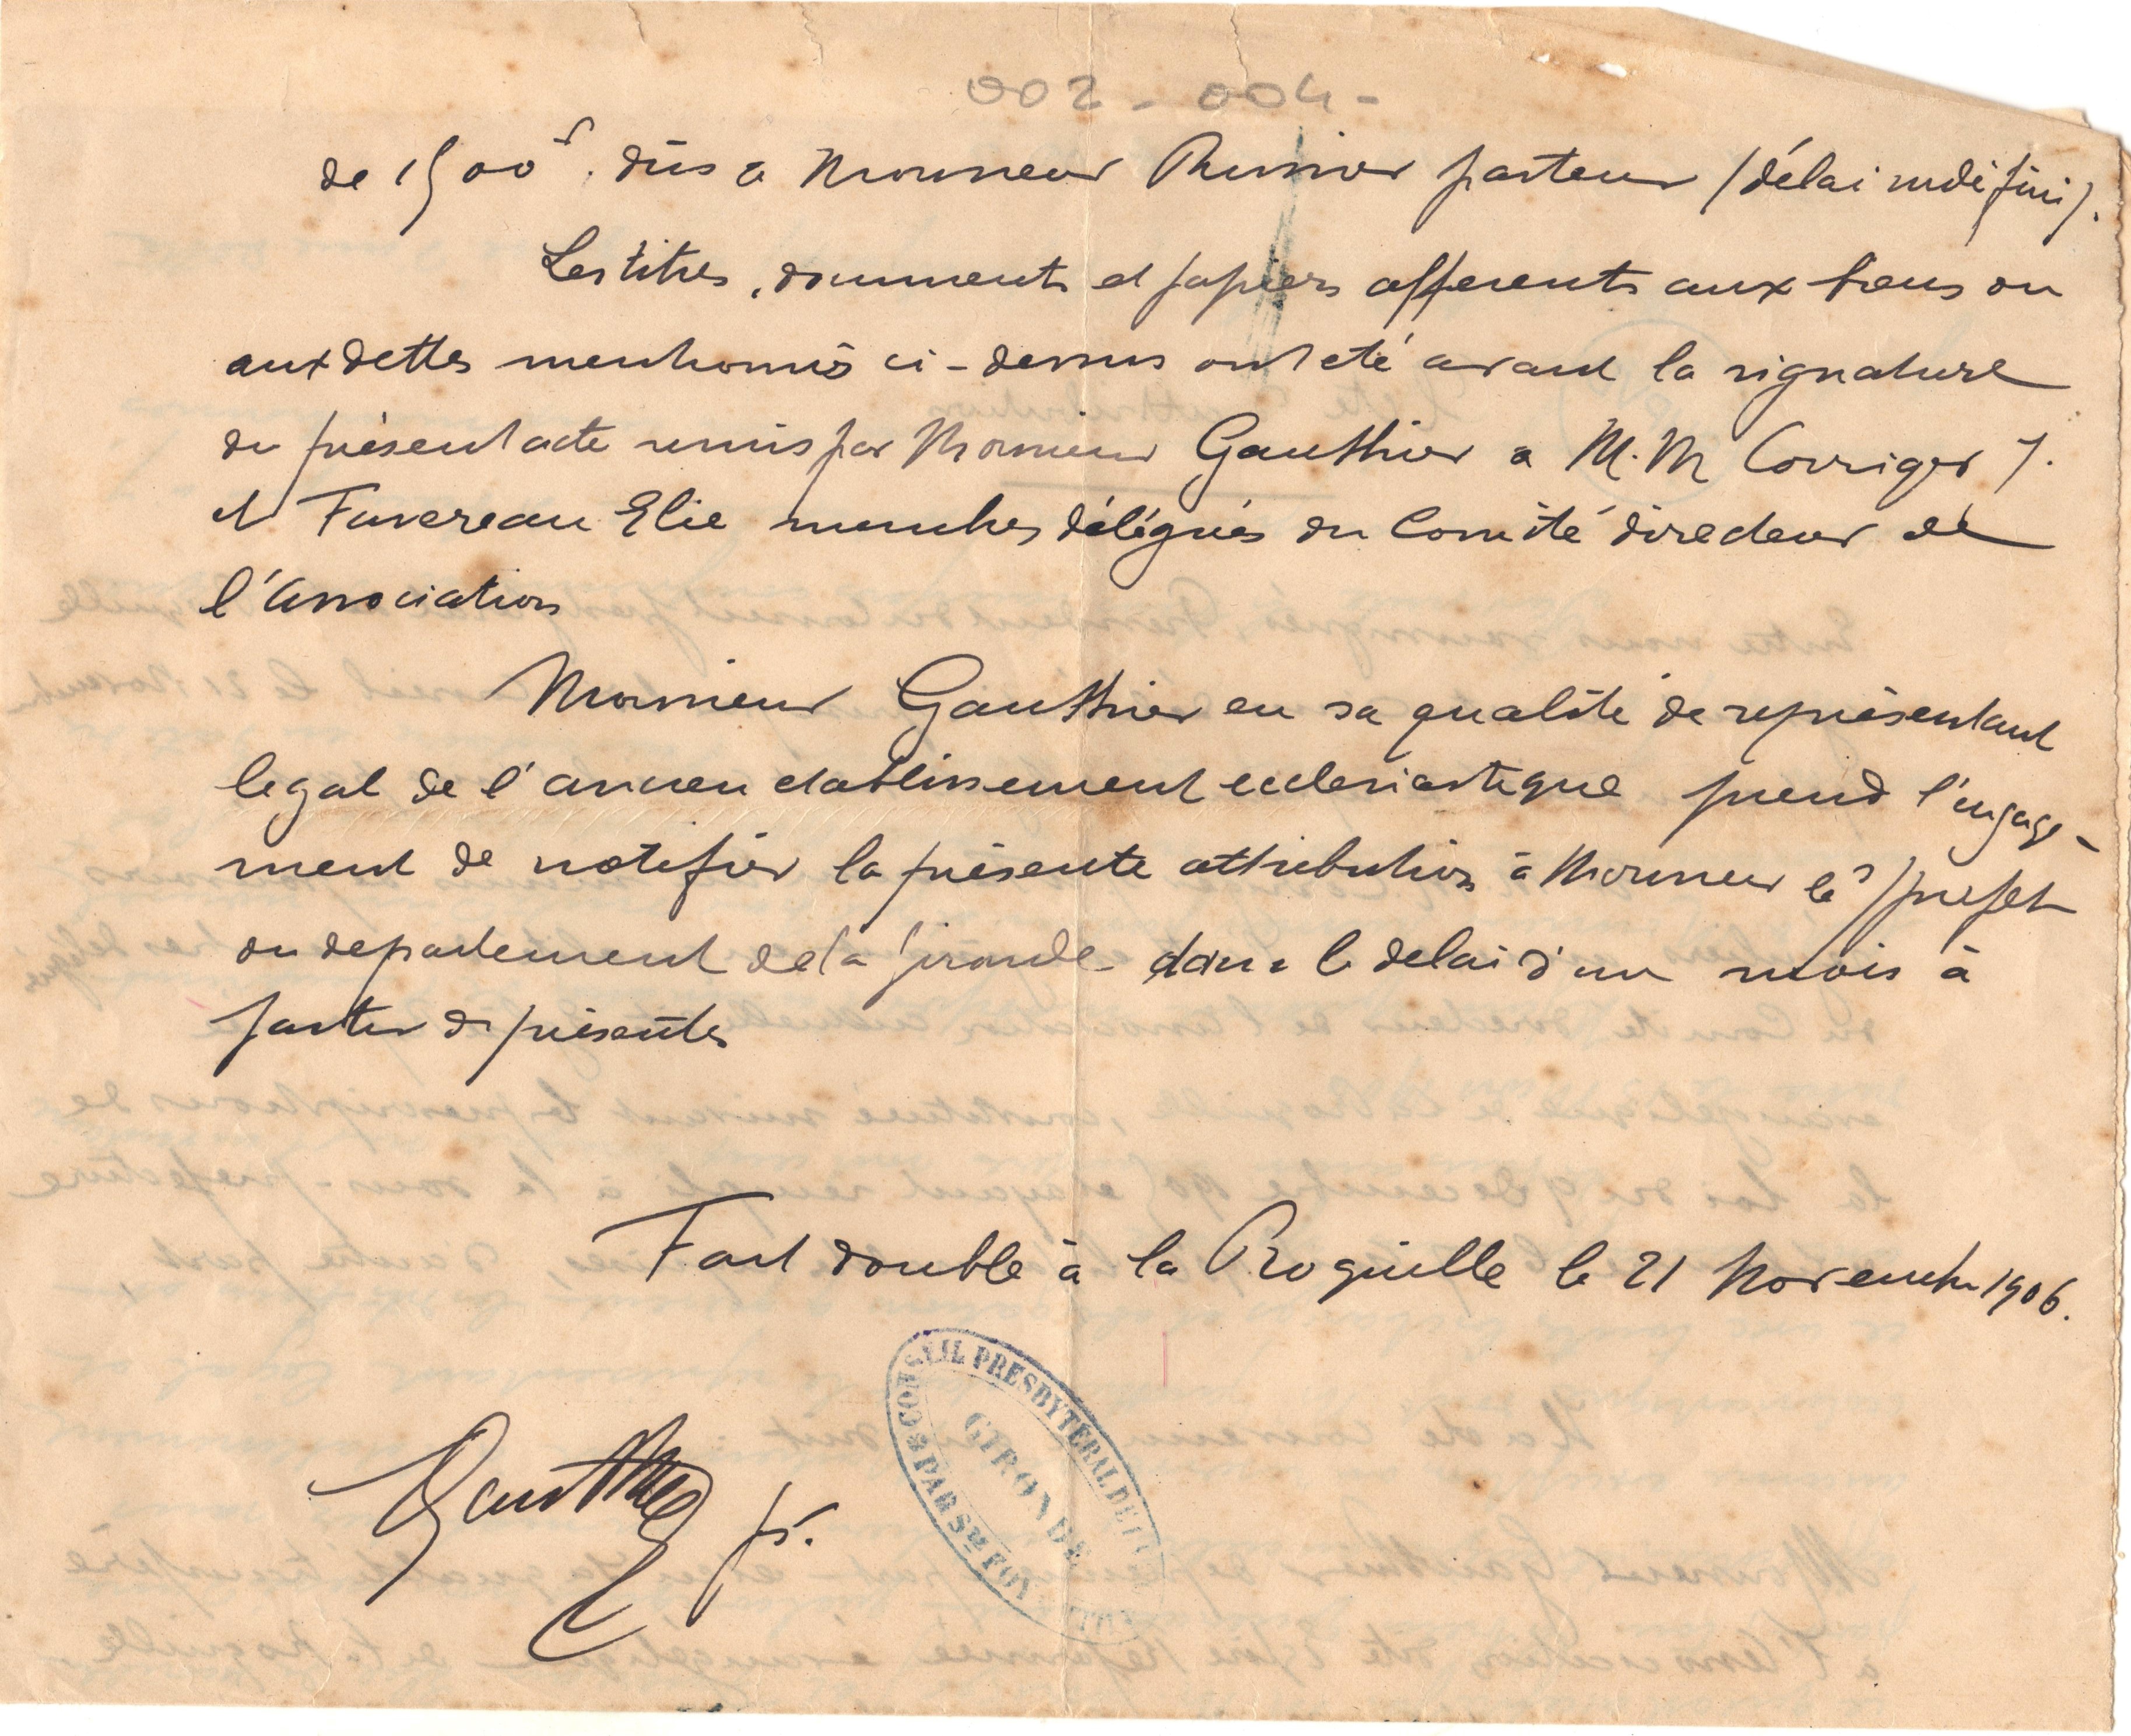 002 - 004 -
de 1500f. dus a Monsieur pasteur (délai indéfini).
Les titres, documents et papiers afferents aux biens ou
aux dettes mentionnés ci-dessus ont eté avant la signature
du présent acte remis par Monsieur Gauthier a M.M Corriger J.
et Favereau Elie membres délégués du Comité directeur de
l'Association
Monsieur Gauthier en sa qualité de représentant
legal de l'ancien etablissement ecclesiastique prend l'engage-
ment de notifier la présente attribution à Monsieur le prefet
du departement de la Gironde dans le delai d'un mois à
partir de présentes
Fait double à la Roquille le 21 Novembre 1906.
Gauthier
CONSEIL PRESBYTÉRAL DE
GIRONDE
PAR Ste FOY